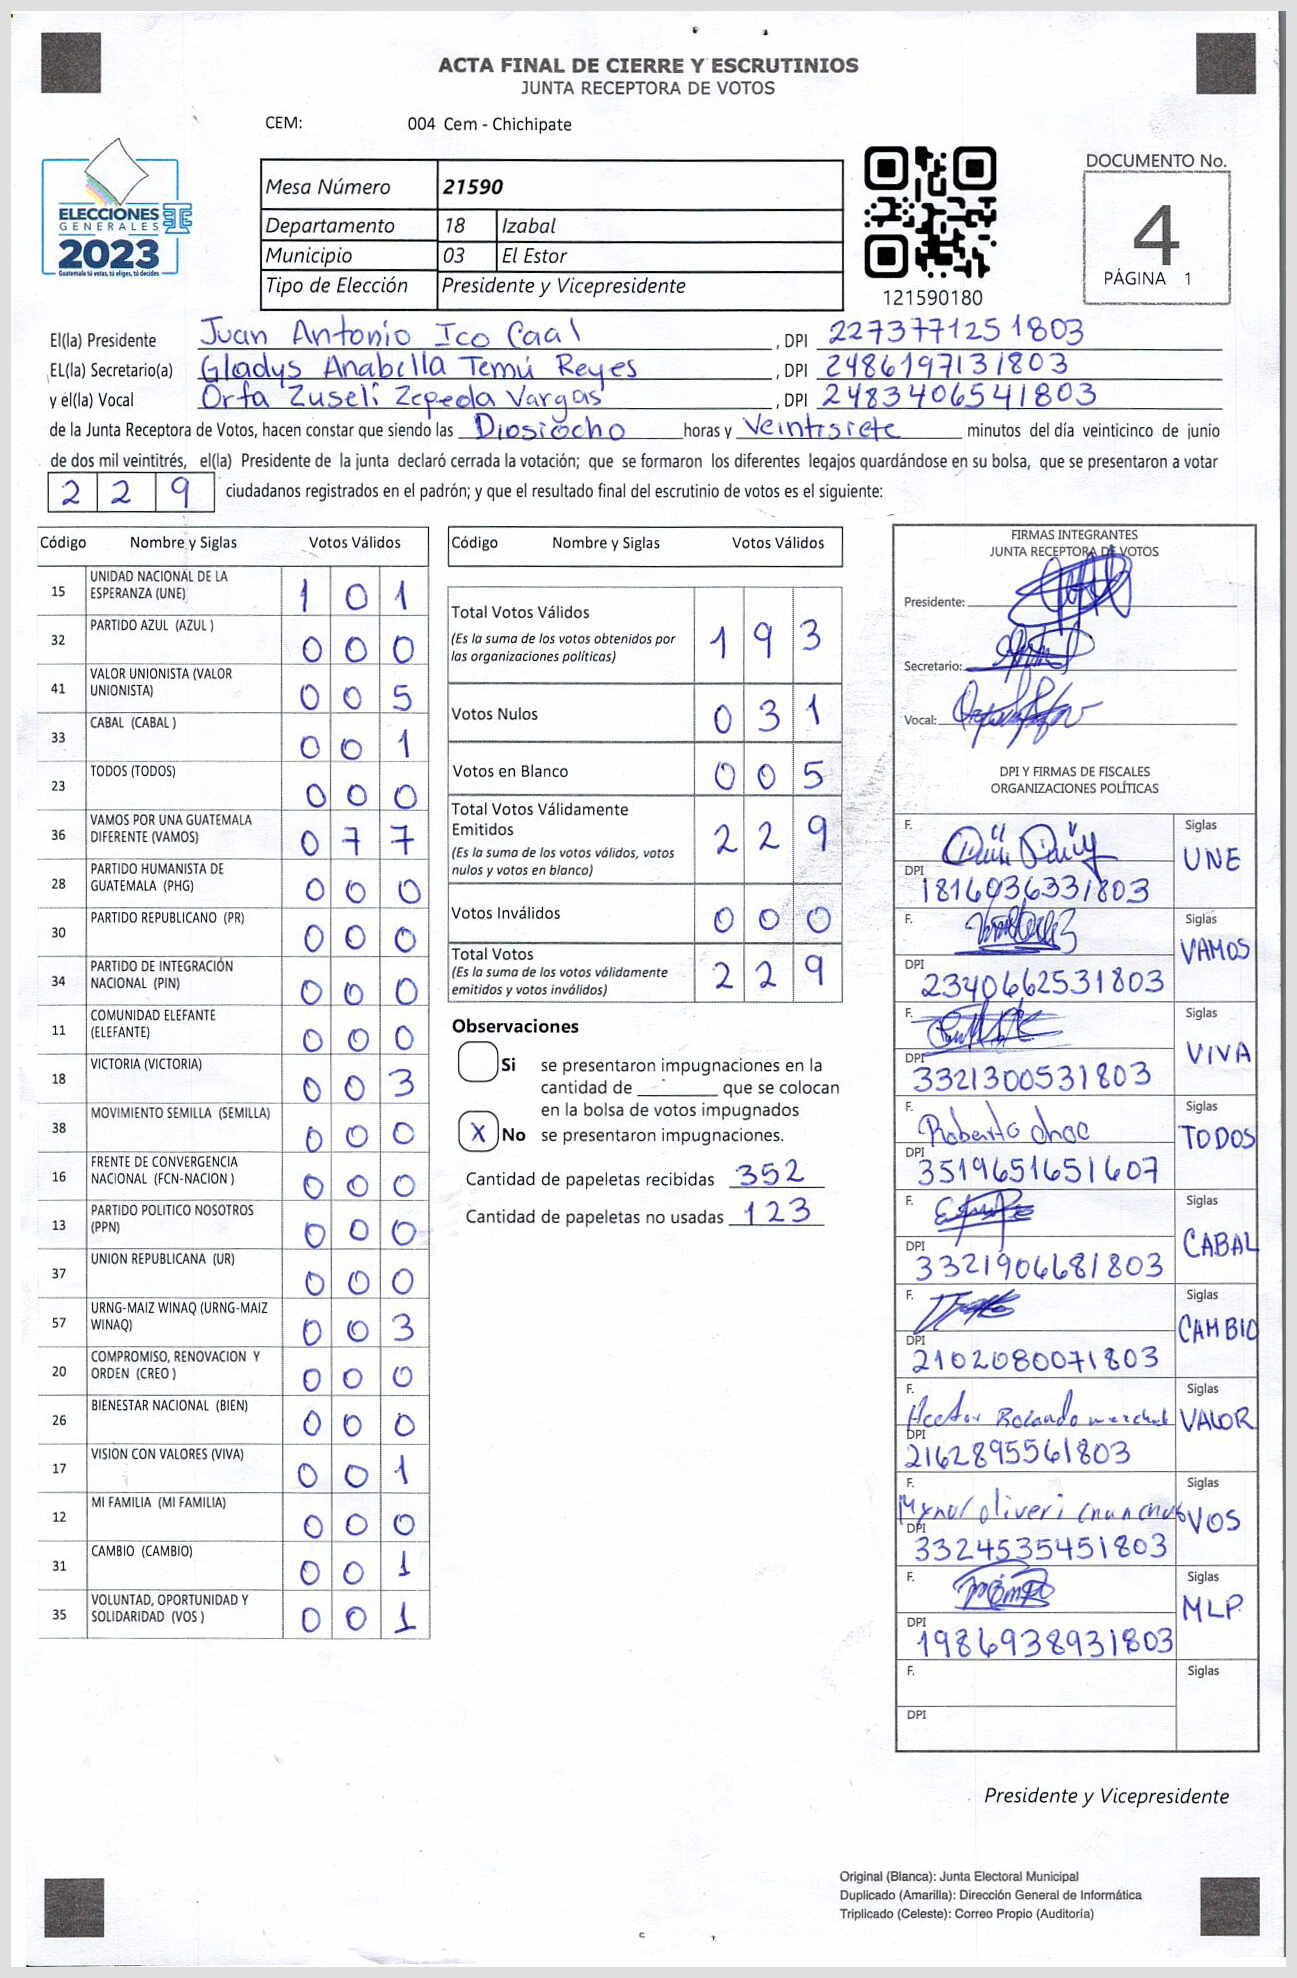 ACTA FINAL DE CIERRE Y ESCRUTINIOS
JUNTA RECEPTORA DE VOTOS
CEM: 004 Cem - Chichipate
ELECCIONES
GENERALES
2023
Guatemala tú votas, tú eliges, tú decides
Mesa Número 21590
Departamento 18 Izabal
Municipio 03 El Estor
Tipo de Elección Presidente y Vicepresidente
121590180
DOCUMENTO No.
4
PÁGINA 1
El(la) Presidente Juan Antonio Ico Caal , DPI 2273771251803
EL(la) Secretario(a) Gladys Anabella Temú Reyes , DPI 2486197131803
y el(la) Vocal Orfa Zuselí Zepeda Vargas , DPI 2483406541803
de la Junta Receptora de Votos, hacen constar que siendo las Diosiocho horas y Veintisiete minutos del día veinticinco de junio
de dos mil veintitrés, el(la) Presidente de la junta declaró cerrada la votación; que se formaron los diferentes legajos guardándose en su bolsa, que se presentaron a votar
229 ciudadanos registrados en el padrón; y que el resultado final del escrutinio de votos es el siguiente:
Código Nombre y Siglas Votos Válidos
15 UNIDAD NACIONAL DE LA ESPERANZA (UNE) 1 0 1
32 PARTIDO AZUL (AZUL ) 0 0 0
41 VALOR UNIONISTA (VALOR UNIONISTA) 0 0 5
33 CABAL (CABAL ) 0 0 1
23 TODOS (TODOS) 0 0 0
36 VAMOS POR UNA GUATEMALA DIFERENTE (VAMOS) 0 7 7
28 PARTIDO HUMANISTA DE GUATEMALA (PHG) 0 0 0
30 PARTIDO REPUBLICANO (PR) 0 0 0
34 PARTIDO DE INTEGRACIÓN NACIONAL (PIN) 0 0 0
11 COMUNIDAD ELEFANTE (ELEFANTE) 0 0 0
18 VICTORIA (VICTORIA) 0 0 3
38 MOVIMIENTO SEMILLA (SEMILLA) 0 0 0
16 FRENTE DE CONVERGENCIA NACIONAL (FCN-NACION ) 0 0 0
13 PARTIDO POLITICO NOSOTROS (PPN) 0 0 0
37 UNION REPUBLICANA (UR) 0 0 0
57 URNG-MAIZ WINAQ (URNG-MAIZ WINAQ) 0 0 3
20 COMPROMISO, RENOVACION Y ORDEN (CREO ) 0 0 0
26 BIENESTAR NACIONAL (BIEN) 0 0 0
17 VISION CON VALORES (VIVA) 0 0 1
12 MI FAMILIA (MI FAMILIA) 0 0 0
31 CAMBIO (CAMBIO) 0 0 1
35 VOLUNTAD, OPORTUNIDAD Y SOLIDARIDAD (VOS ) 0 0 1
Código Nombre y Siglas Votos Válidos
Total Votos Válidos
(Es la suma de los votos obtenidos por las organizaciones políticas) 1 9 3
Votos Nulos 0 3 1
Votos en Blanco 0 0 5
Total Votos Válidamente Emitidos
(Es la suma de los votos válidos, votos nulos y votos en blanco) 2 2 9
Votos Inválidos 0 0 0
Total Votos
(Es la suma de los votos válidamente emitidos y votos inválidos) 2 2 9
Observaciones
Si se presentaron impugnaciones en la
cantidad de ________ que se colocan
en la bolsa de votos impugnados
X No se presentaron impugnaciones.
Cantidad de papeletas recibidas 352
Cantidad de papeletas no usadas 123
FIRMAS INTEGRANTES
JUNTA RECEPTORA DE VOTOS
Presidente:
Secretario:
Vocal:
DPI Y FIRMAS DE FISCALES
ORGANIZACIONES POLÍTICAS
F. Siglas UNE
DPI 1816036331803
F. Siglas VAMOS
DPI 2340662531803
F. Siglas VIVA
DPI 3321300531803
F. Roberto choc Siglas TODOS
DPI 3519651651607
F. Siglas CABAL
DPI 3321906681803
F. Siglas CAMBIO
DPI 2102080071803
F. Hector Rolando Siglas VALOR
DPI 2162895561803
F. Siglas VOS
DPI 3324535451803
F. Siglas MLP
DPI 1986938931803
F. Siglas
DPI
Presidente y Vicepresidente
Original (Blanca): Junta Electoral Municipal
Duplicado (Amarilla): Dirección General de Informática
Triplicado (Celeste): Correo Propio (Auditoría)